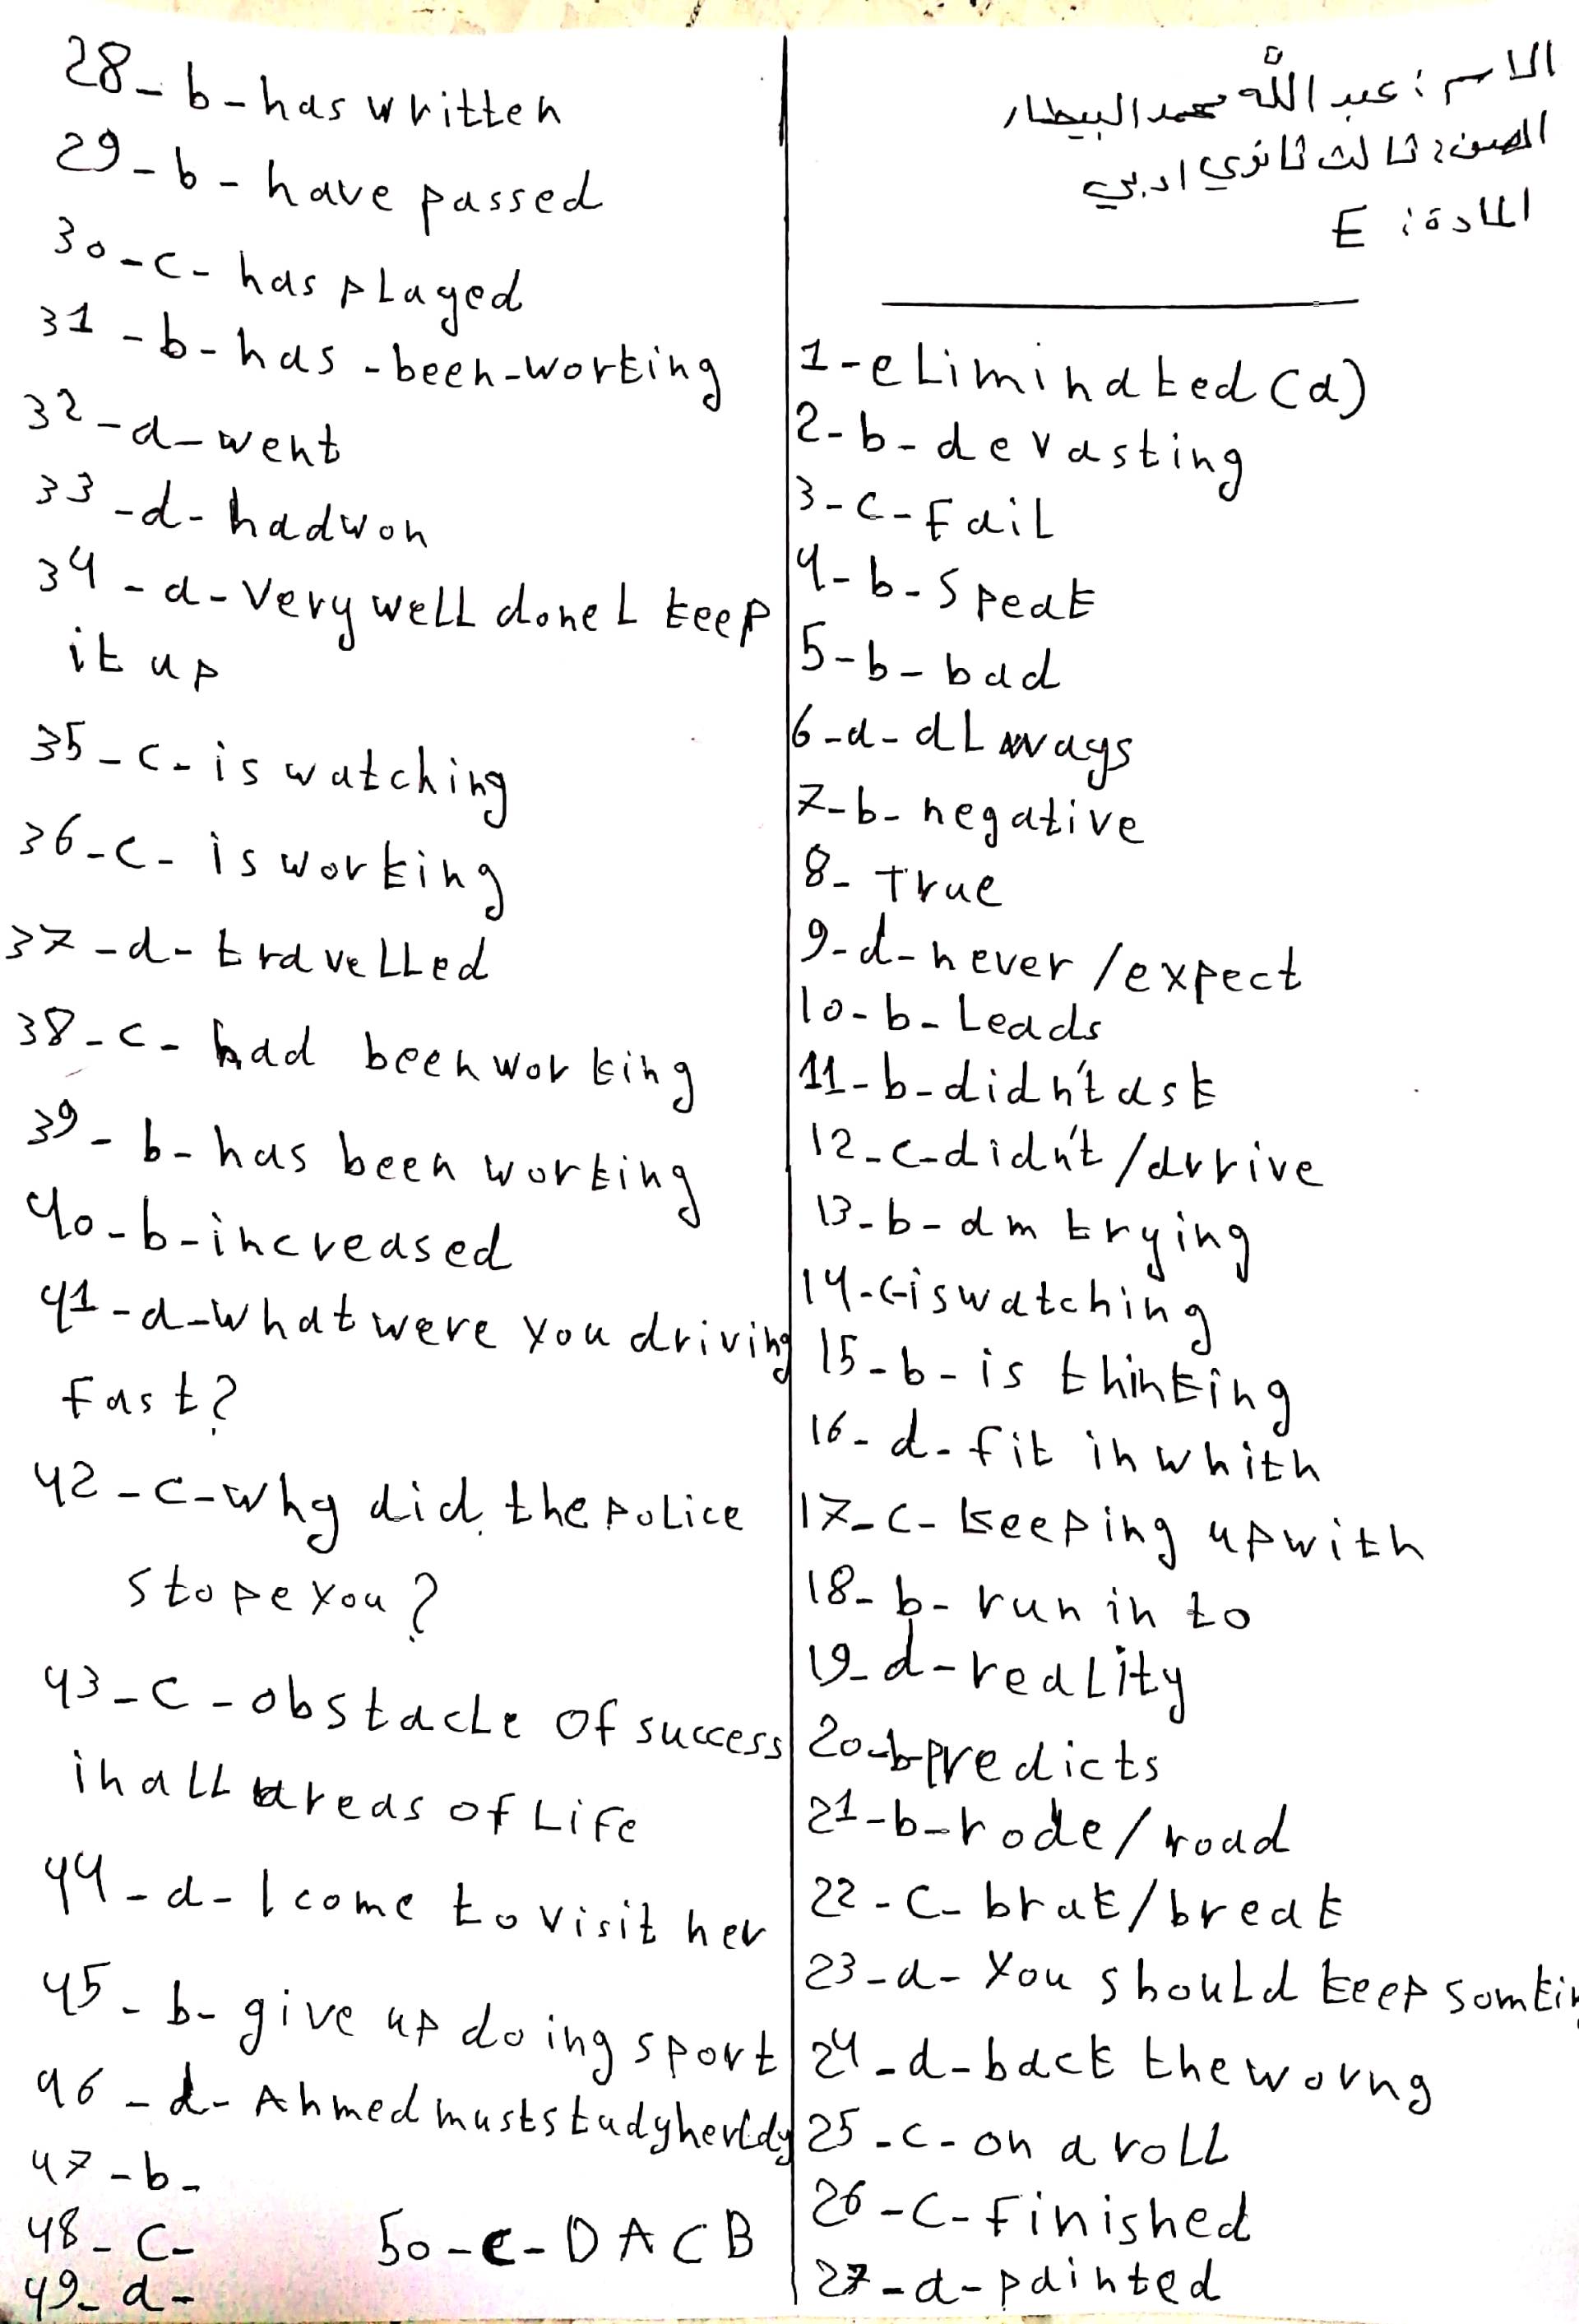 الاسم: عبد الله محمد البيطار
الصف: ثالث ثانوي ادبي
المادة: E
1-eliminated (a)
2-b-devasting
3-c-fail
4-b-speak
5-b-bad
6-a-always
7-b-negative
8-True
9-d-never/expect
10-b-Leads
11-b-didn't ask
12-c-didn't/arrive
13-b-am trying
14-c-is watching
15-b-is thinking
16-d-fit in whith
17-c-keeping up with
18-b-run in to
19-d-reality
20-b-predicts
21-b-rode/road
22-c-brak/break
23-a-You should keep somtin
24-d-back the worng
25-c-on a roll
26-c-finished
27-a-painted
28-b-has written
29-b-have passed
30-c-has played
31-b-has-been-working
32-d-went
33-d-had won
34-a-Very well done L keep
it up
35-c-is watching
36-c-is working
37-d-travelled
38-c-had been working
39-b-has been working
40-b-increased
41-d-what were you driving
fast?
42-c-why did the police
stope you?
43-c-obstacle of success
in all areas of Life
44-d-I come to visit her
45-b-give up doing sport
46-d-Ahmed must study
47-b-
48-c-
49-d-
50-c-DACB